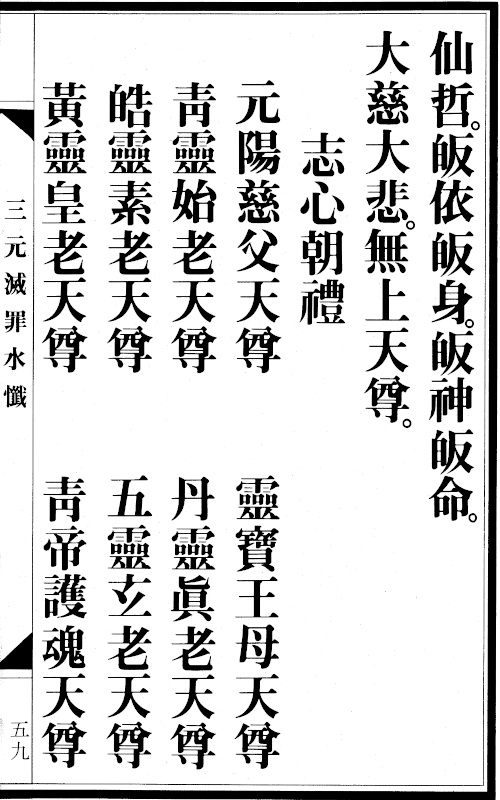 仙哲。皈依皈身。皈神皈命。
大慈大悲。無上天尊。
志心朝禮
元陽慈父天尊　靈寶王母天尊
靑靈始老天尊　丹靈眞老天尊
皓靈素老天尊　五靈玄老天尊
黃靈皇老天尊　靑帝護魂天尊
三元滅罪水懺
五九